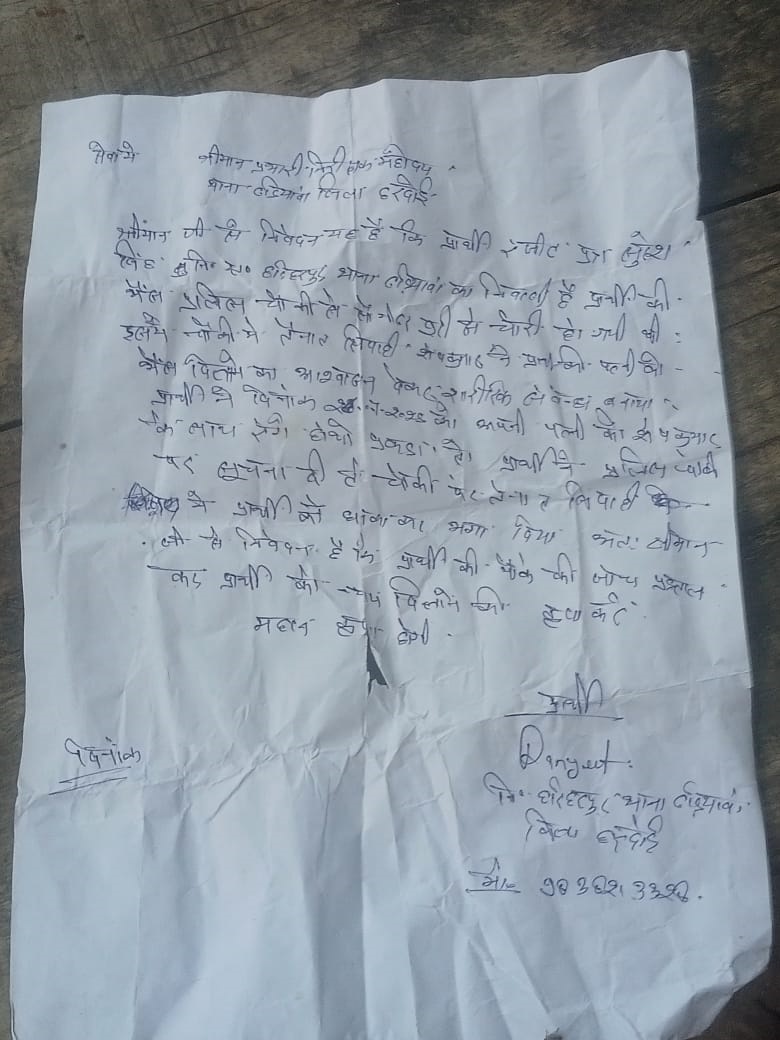 सेवा में
श्रीमान प्रभारी निरीक्षक महोदय
थाना टड़ियावां जिला हरदोई
श्रीमान जी से निवेदन यह है कि प्रार्थी रंजीत पुत्र सुरेश
सिंह नि० ग्रा० हरिहरपुर थाना टड़ियावां का निवासी है प्रार्थी की
भैंस पुलिस चौकी से सौ मीटर दूरी से चोरी हो गयी थी
इसमें चौकी मे तैनात सिपाही ने प्रार्थी की पत्नी को
भैंस दिलाने का आश्वासन देकर शारीरिक बनाया
प्रार्थी ने दिनांक को अपनी पत्नी को कुमार
के साथ रंगे हाथो पकड़ा है। प्रार्थी ने पुलिस चौकी
पर सूचना दी तो चौकी पर तैनात सिपाही
ने प्रार्थी को धमका कर भगा दिया अतः श्रीमान
जी से निवेदन है कि प्रार्थी की भैंस की जांच पड़ताल
कर प्रार्थी को न्याय दिलाने की कृपा करें
महान कृपा होगी
प्रार्थी
दिनांक
Ranjeet
नि० हरिहरपुर थाना टड़ियावां
जिला हरदोई
मो०